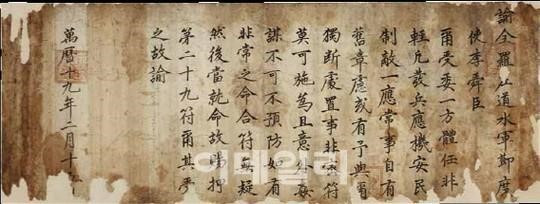 諭全羅左道水軍節度
使李舜臣
爾受委一方體任非
輕凡發兵應機安民
制敵一應常事自有
舊章慮或有予與爾
獨斷處置事非密符
莫可施爲且意外姦
謀不可不預防如有
非常之命合符無疑
然後當就命故賜押
第二十九符爾其受
之故諭
萬曆十九年二月十
이데일리